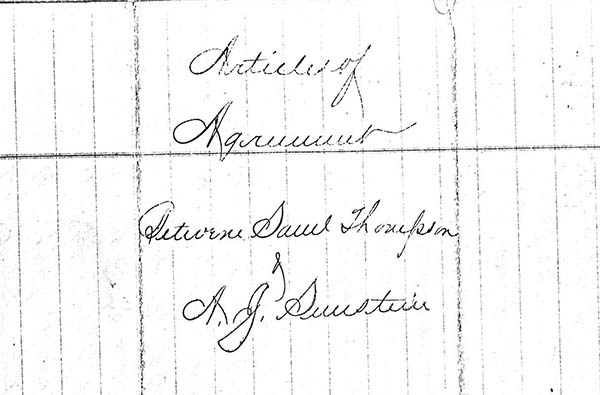 Articles of
Agreement
Between Saml Thompson
&
A. J. Sunstein